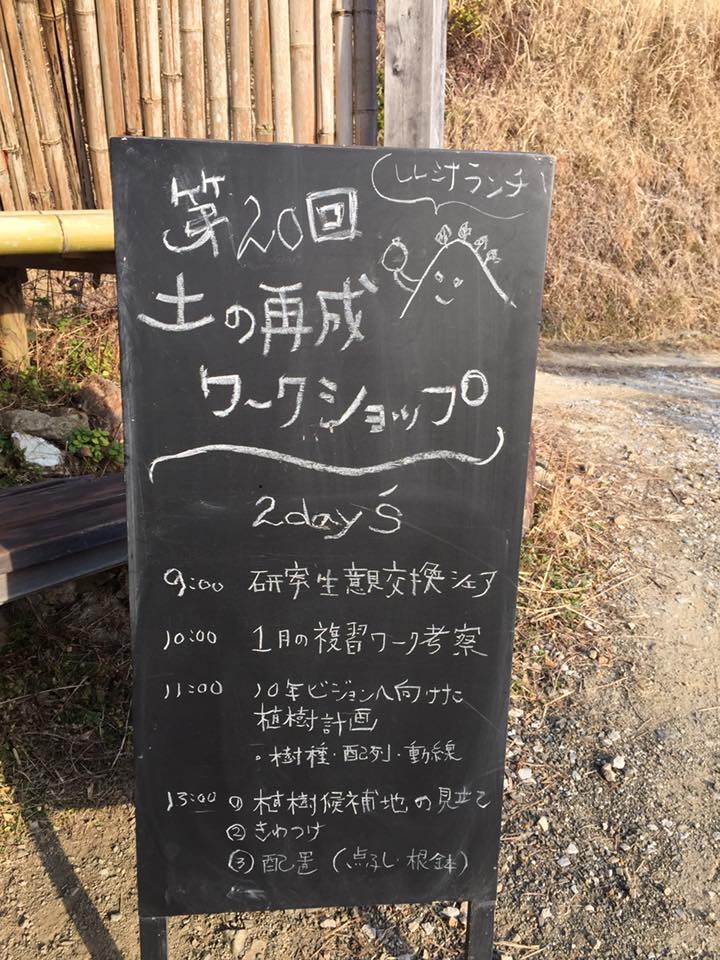 しし汁ランチ
第20回
土の再成
ワークショップ
2day's
9:00 研究生意見交換シェア
10:00 1月の複習ワーク考察
11:00 10年ビジョンへ向けた
植樹計画
。樹種・配列・動線
13:00 ① 植樹候補地の見立て
② きわつけ
③ 配置(・根鉢)